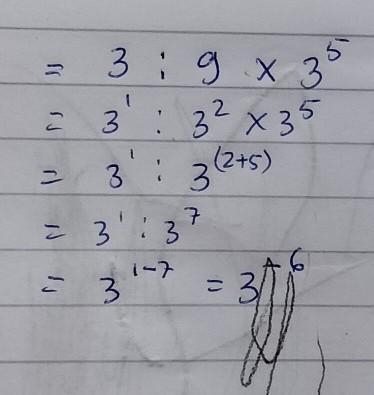 = 3 : 9 × 3⁵
= 3¹ : 3² × 3⁵
= 3¹ : 3⁽²⁺⁵⁾
= 3¹ : 3⁷
= 3¹⁻⁷ = 3⁻⁶